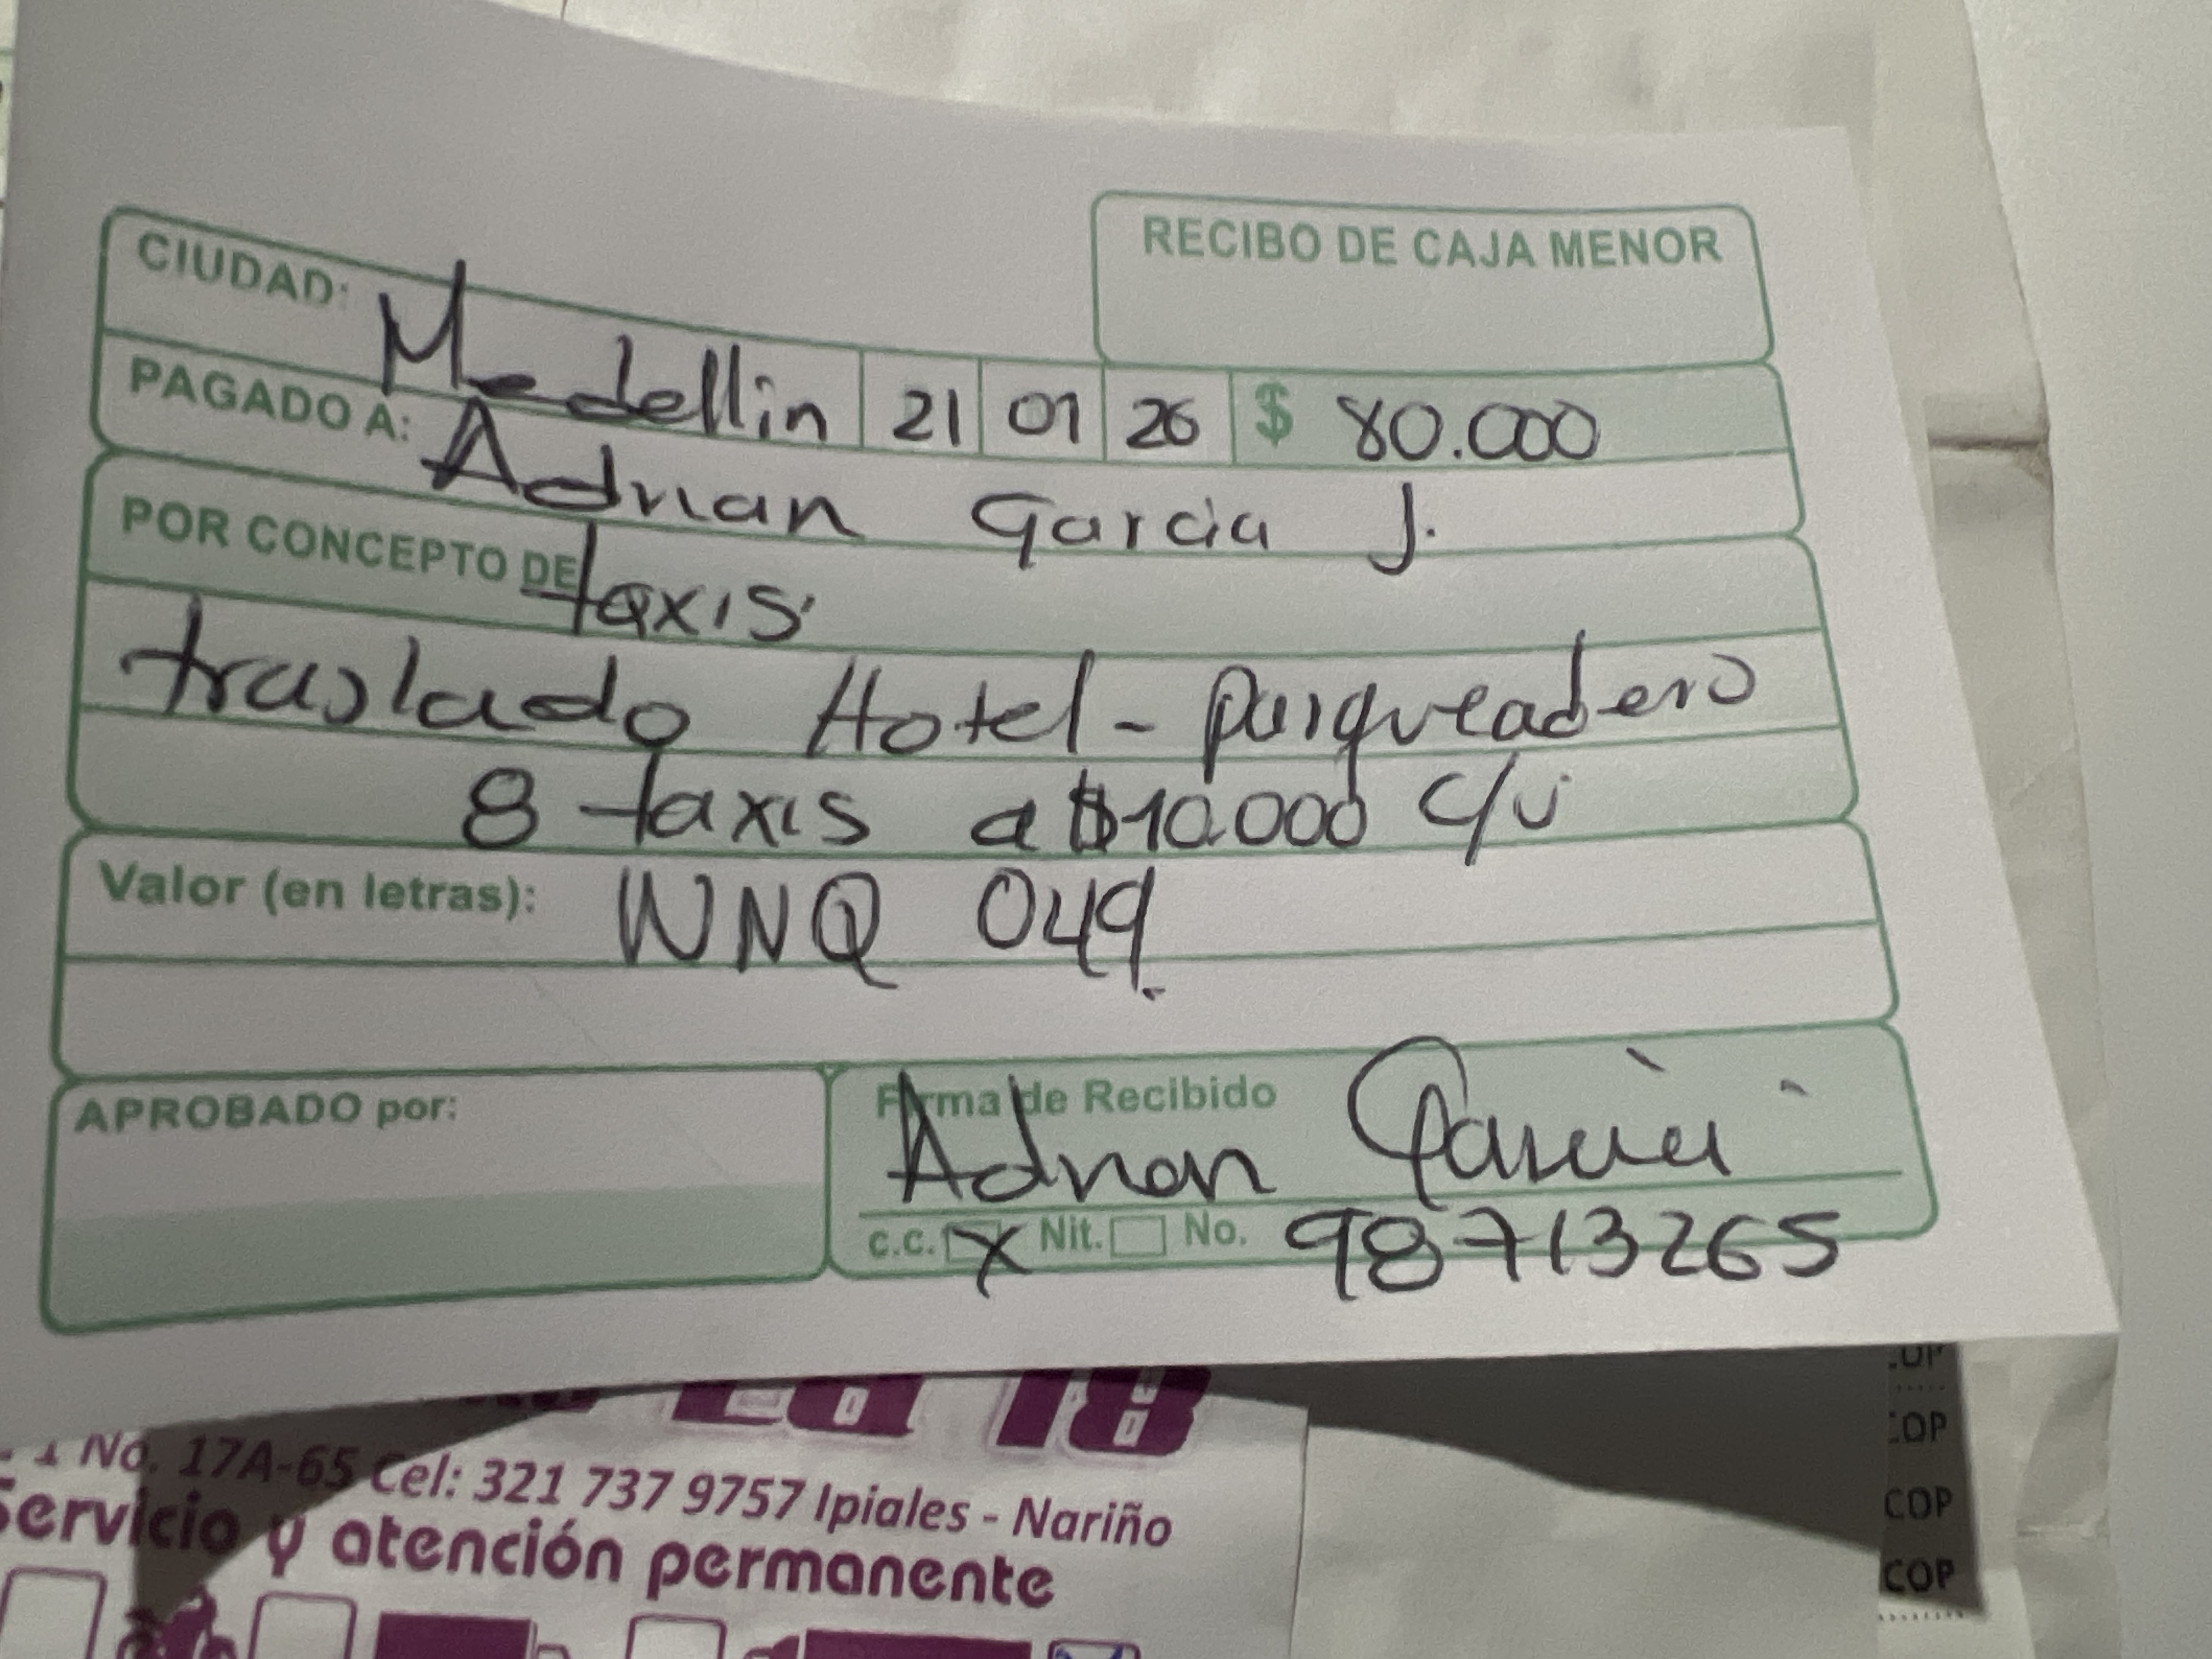 RECIBO DE CAJA MENOR
CIUDAD: Medellin 21 01 26 $ 80.000
PAGADO A: Adrian Garcia J.
POR CONCEPTO DE taxis
traslado Hotel - parqueadero
8 taxis a $10.000 c/u
Valor (en letras): WNQ 049.
APROBADO por:
Firma de Recibido Adrian Garcia
c.c. X Nit. No. 98713265
La 18
1 No. 17A-65 Cel: 321 737 9757 Ipiales - Nariño
Servicio y atención permanente
COP
COP
COP
COP